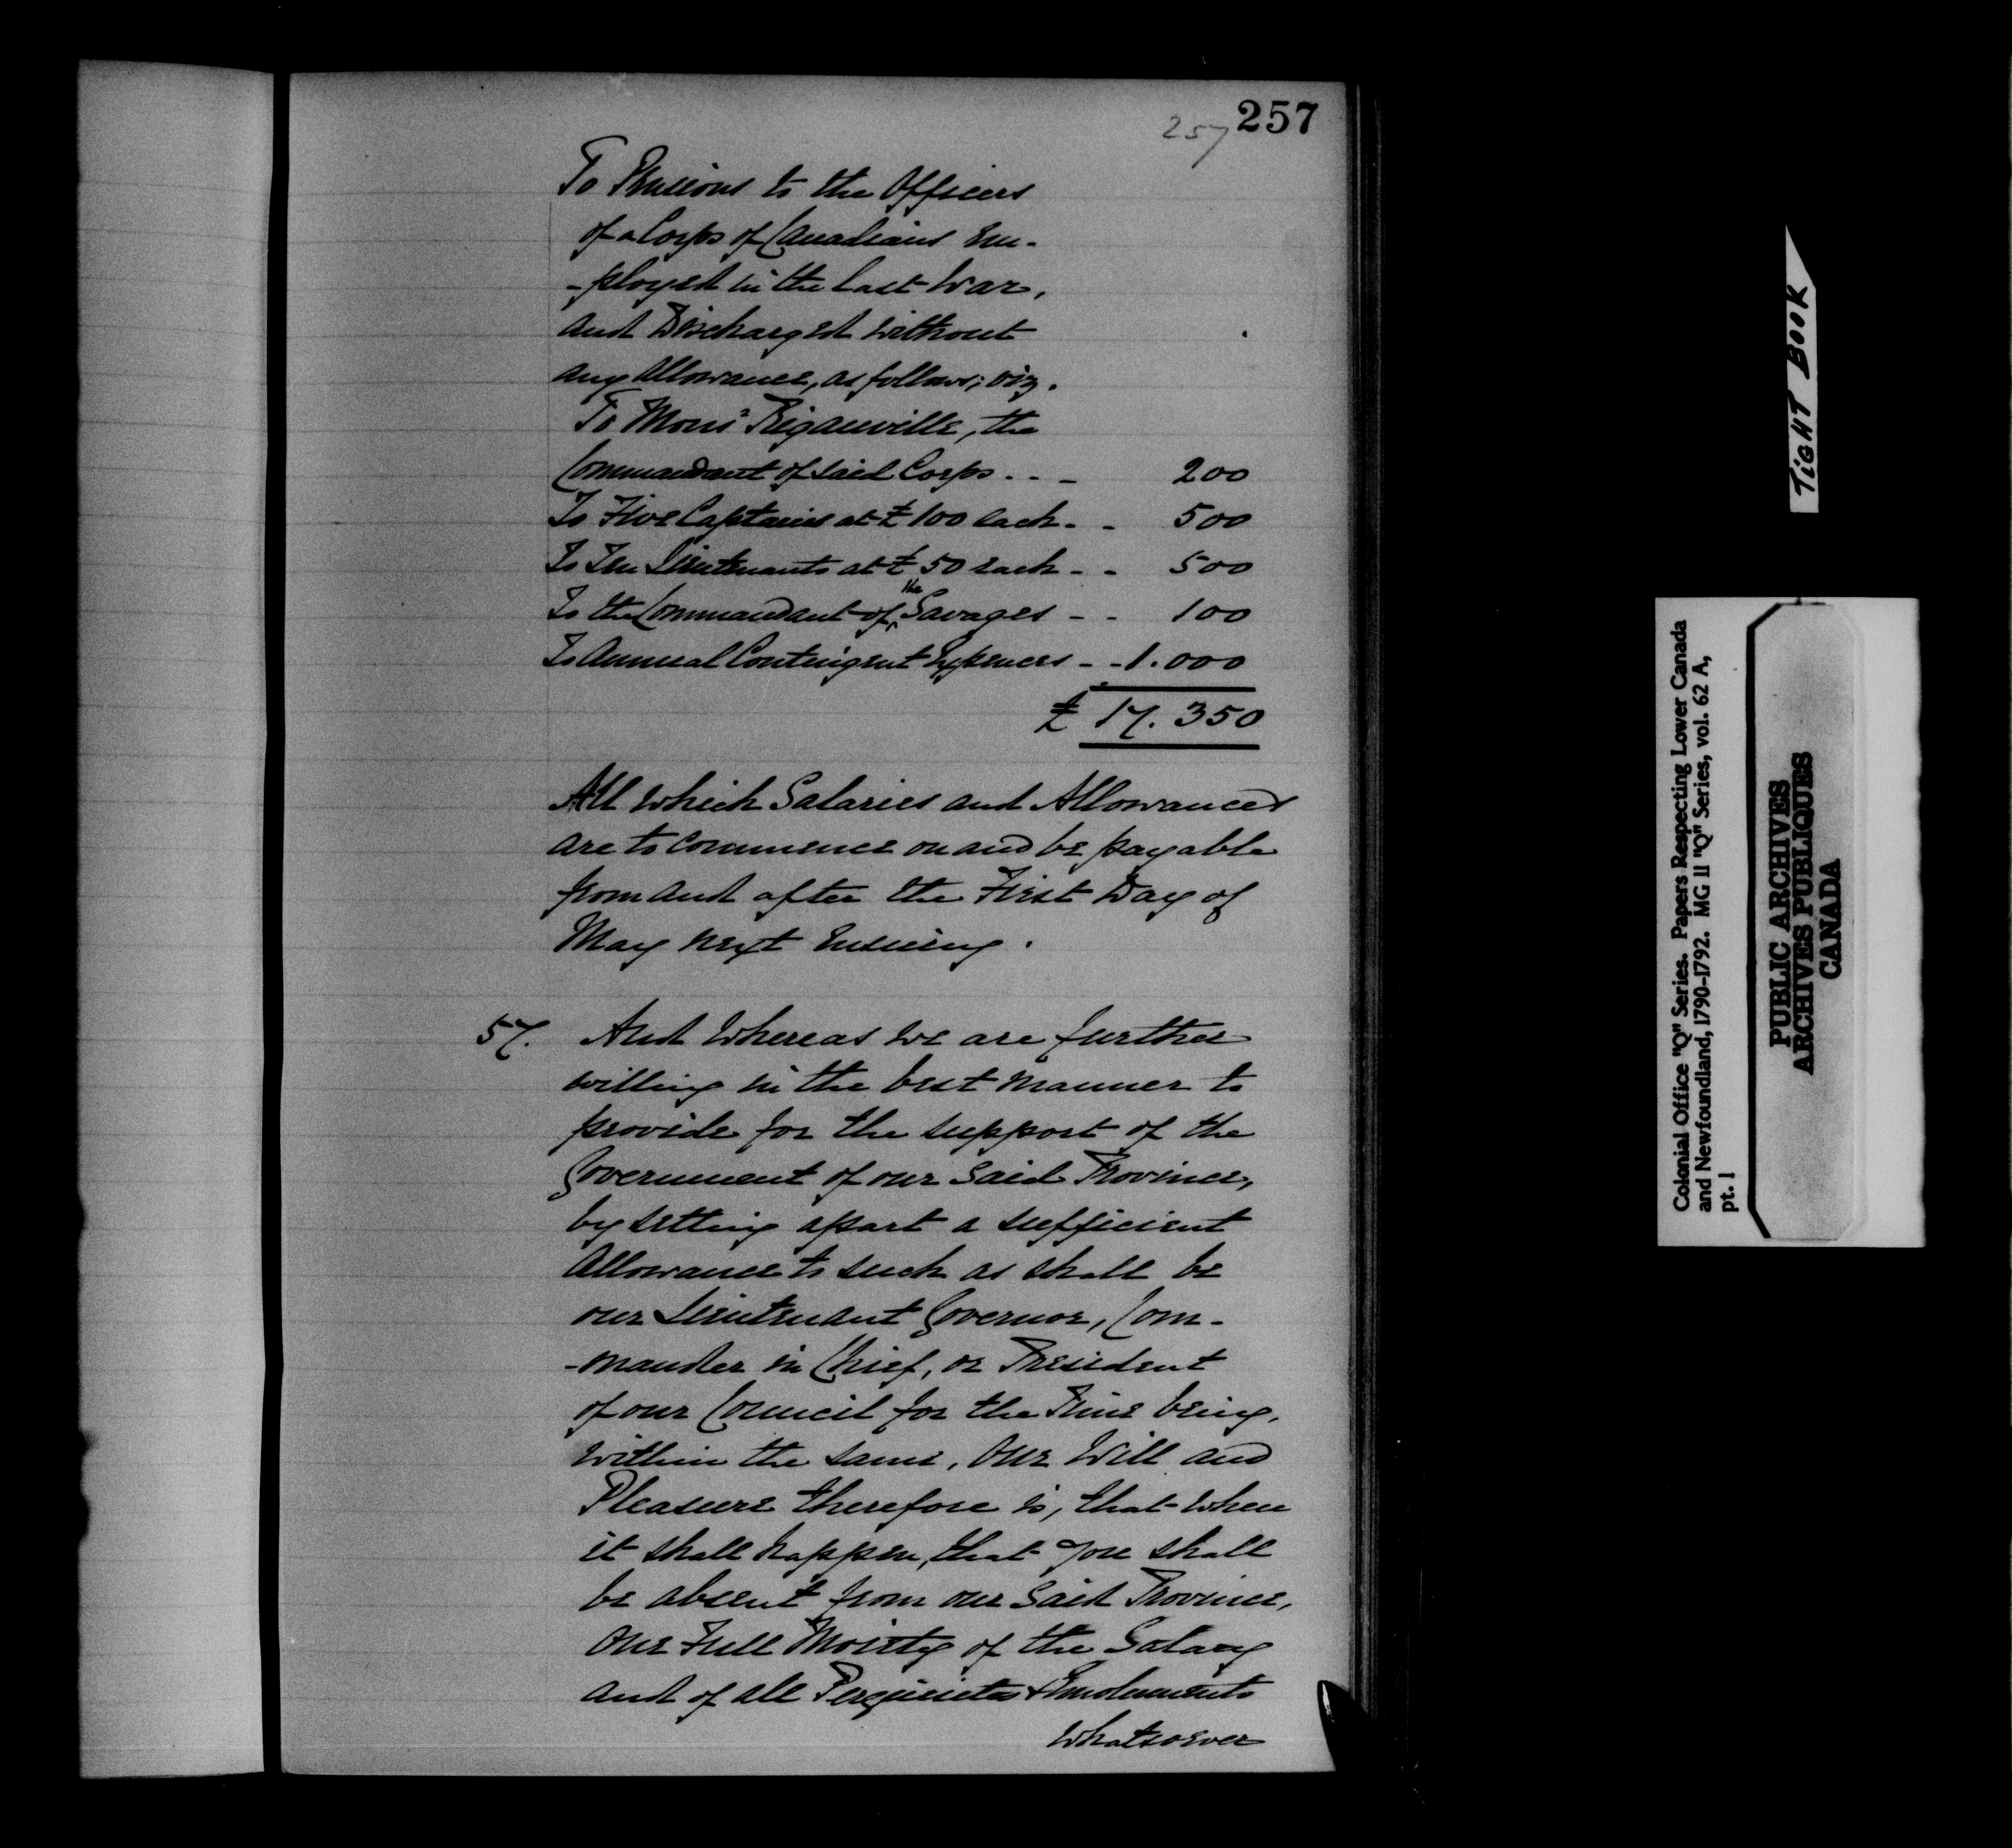 257 257
To Pensions to the Officers
of a Corps of Canadians Em-
-ployed in the last War,
and Discharged without
any Allowance, as follows; viz.
To Monsr Rigauville, the
Commandant of said Corps . . - 200
To Five Captains at £100 each - - 500
To Ten Lieutenants at £50 each - - 500
To the Commandant of the Savages - - 100
To Annual Contingent Expences - - 1.000
£ 17.350
All which Salaries and Allowances
are to commence on and be payable
from and after the First Day of
May next Ensuing.
57. And Whereas we are further
willing in the best manner to
provide for the support of the
Government of our said Province,
by setting apart a sufficient
Allowance to such as shall be
our Lieutenant Governor, Com-
-mander in Chief, or President
of our Council for the Time being,
within the same, Our Will and
Pleasure therefore is, that when
it shall happen, that you shall
be absent from our said Province,
One Full Moiety of the Salary
and of all Perquisites & Emoluments
Whatsoever
TIGHT BOOK
Colonial Office "Q" Series. Papers Respecting Lower Canada
and Newfoundland, 1790-1792. MG 11 "Q" Series, vol. 62 A,
pt. 1
PUBLIC ARCHIVES
ARCHIVES PUBLIQUES
CANADA